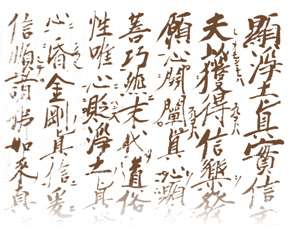 顯淨土眞實信
夫以獲得信樂發
願心開闡眞心顯
善巧然末代道俗
性唯心貶淨土眞
心昏金剛眞信爰
信順諸佛如來眞